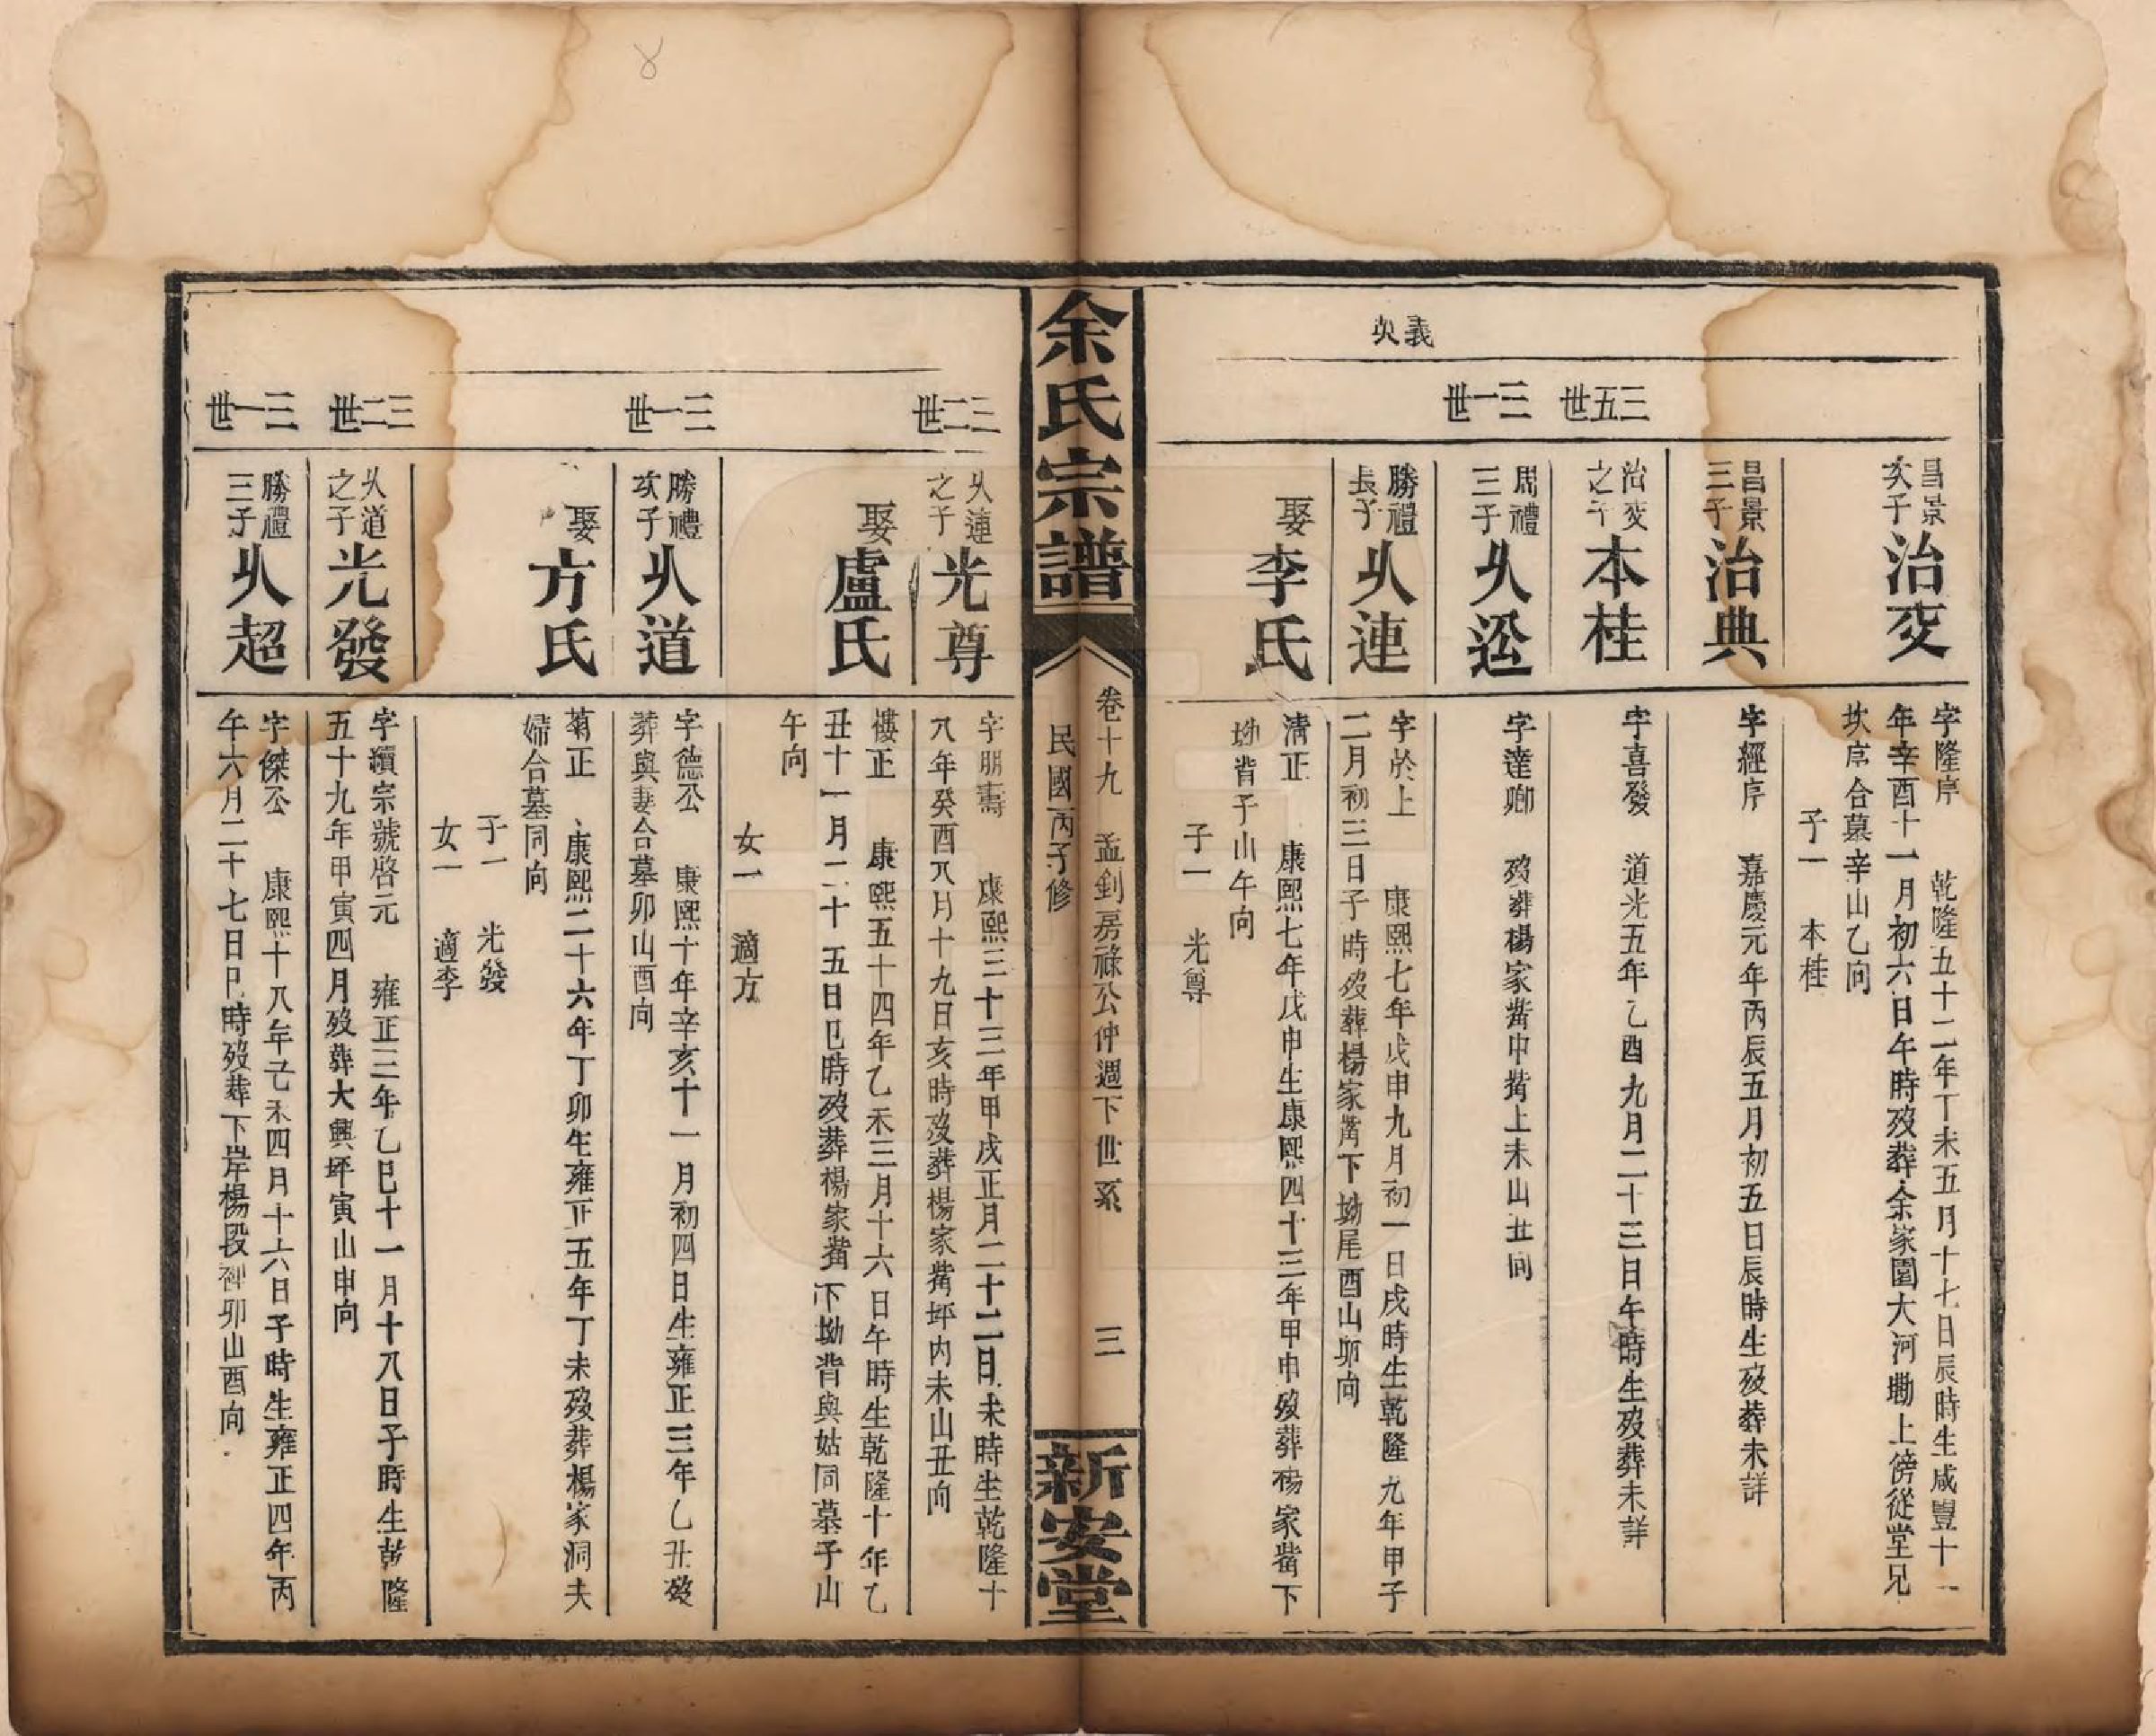 義
次
昌景
次子
治変
字隆序 乾隆五十二年丁未五月十七日辰時生咸豐十一
年辛酉十一月初六日午時歿葬余家園大河墈上傍從堂兄
坎序合墓辛山乙向
子一 本桂
昌景
三子
治典
字經序 嘉慶元年丙辰五月初五日辰時生歿葬未詳
三五世
治変
之子
本桂
字喜發 道光五年乙酉九月二十三日午時生歿葬未詳
三一世
周禮
三子
从
字達卿 歿葬楊家嘴中嘴上未山丑向
勝禮
長子
从連
字於上 康熙七年戊申九月初一日戌時生乾隆九年甲子
二月初三日子時歿葬楊家嘴下坳尾酉山卯向
娶李氏
清正 康熙七年戊申生康熙四十三年甲申歿葬楊家嘴下
坳背子山午向
子一 光尊
余氏宗譜
卷十九 孟釗房祿公仲週下世系
民國丙子修
三
新安堂
三二世
从連
之子
光尊
字朋壽 康熙三十三年甲戌正月二十二日未時生乾隆十
八年癸酉八月十九日亥時歿葬楊家嘴坪內未山丑向
娶盧氏
褸正 康熙五十四年乙未三月十六日午時生乾隆十年乙
丑十一月二十五日巳時歿葬楊家嘴下坳背與姑同墓子山
午向
女一 適方
三一世
勝禮
次子
从道
字德公 康熙十年辛亥十一月初四日生雍正三年乙丑歿
葬與妻合墓卯山酉向
娶方氏
菊正 康熙二十六年丁卯生雍正五年丁未歿葬楊家洞夫
婦合墓同向
子一 光發
女一 適李
三二世
从道
之子
光發
字續宗號啓元 雍正三年乙巳十一月十八日子時生乾隆
五十九年甲寅四月歿葬大興坪寅山申向
三一世
勝禮
三子
从超
字傑公 康熙十八年己未四月十六日子時生雍正四年丙
午六月二十七日巳時歿葬下岸楊段碑卯山酉向